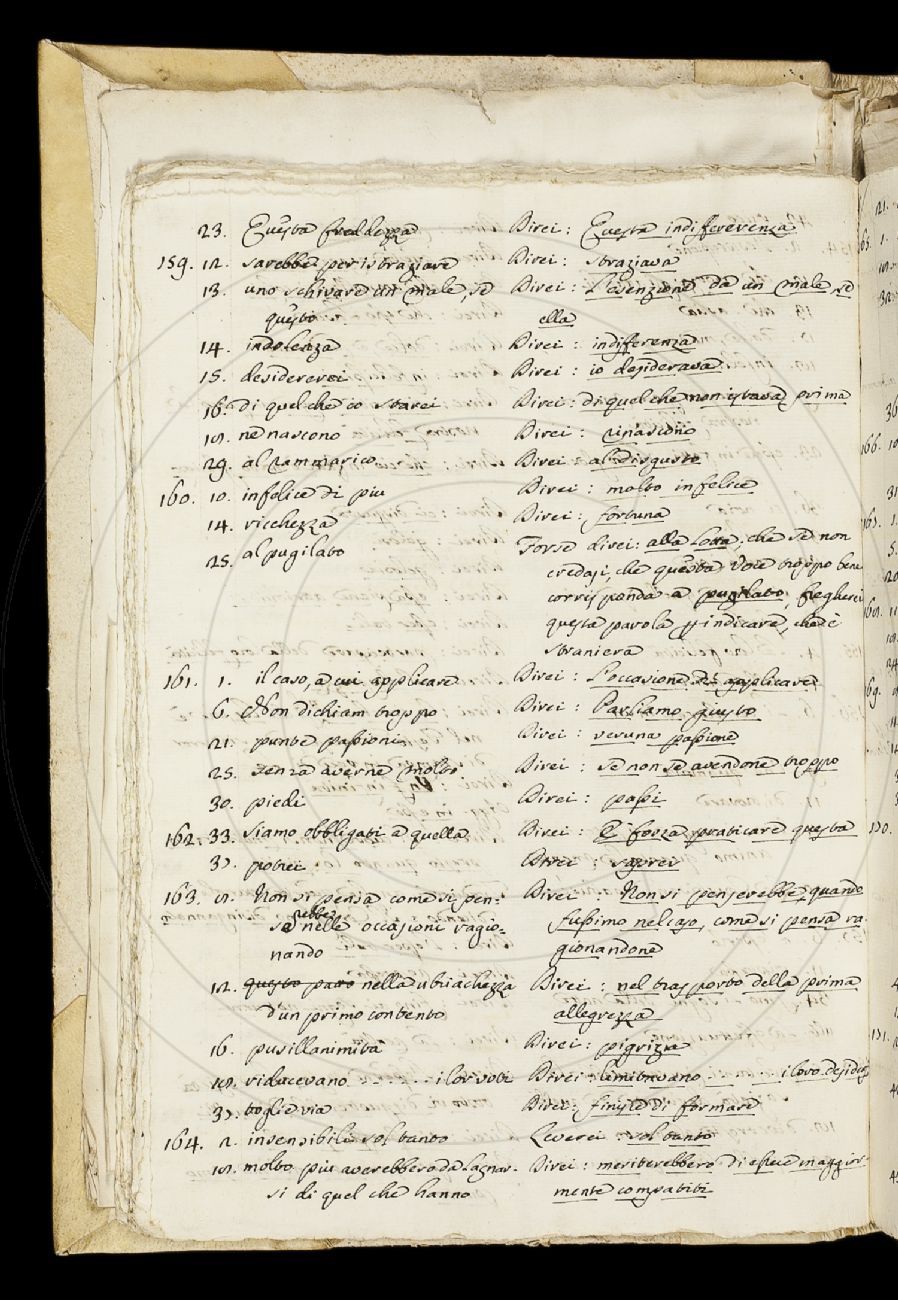 23. Questa freddezza Direi: Questa indifferenza
159. 12. sarebbe per istraziare Direi: straziava
13. uno schivare un male, se Direi: L'esenzione da un male, se
questo è. ella
14. indolenza Direi: indifferenza
15. desidererei Direi: io desiderava
16. di quel che io starei Direi: di quel che non istava prima
17. ne nascono Direi: rinascono
29. al rammarico Direi: al disgusto
160. 10. infelice di piu Direi: molto infelice
14. ricchezza Direi: fortuna
25. al pugilato Forse direi: alla Lotta; che se non
credasi, che questa voce troppo bene
corrisponda a pugilato,
questa parola p indicare, che è
straniera
161. 1. il caso, a cui applicare Direi: L'occasione di applicare
6. Non dichiam troppo Direi: Parliamo giusto
21. punte passioni Direi: veruna passione
25. senza averne molto Direi: se non se avendone troppo
30. piedi Direi: passi
162. 33. siamo obbligati a quella Direi: È forza praticare questa
37. potrei Direi: saprei
163. 7. Non si pensa come si pen- Direi: Non si penserebbe, quando
serebbe nelle occasioni ragio- fussimo nel caso, come si pensa ra-
nando gionandone
12. questo paro nella ubriachezza Direi: nel trasporto della prima
d'un primo contento allegrezza
16. pusillanimità Direi: pigrizia
17. riducevano . . . . . i lor voti Direi: limitavano . . . . i loro desiderj
37. toglie via Direi: finisce di formare
164. 2. insensibili soltanto Leverei soltanto
17. molto piu averebbero da lagnar- Direi: meriterebbero di esser maggior-
si di quel che hanno mente compatiti